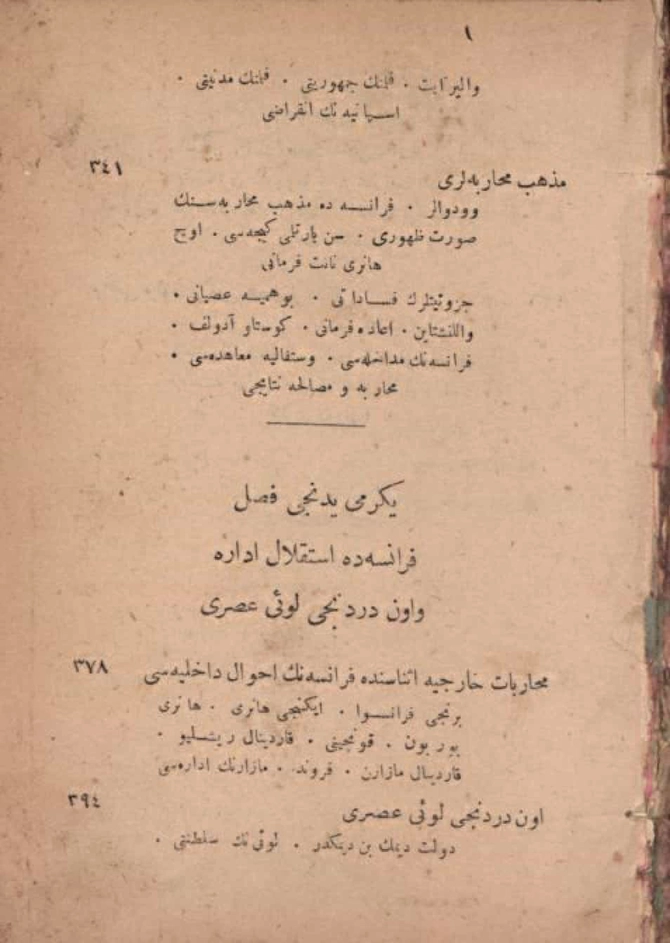 ١
والیرانیت . فلمنك جمهوریتی . فلمنك مدنیتی .
اسپانیه‌نك انقراضی
مذهب محاربه‌لری ٣٤١
وودوالر . فرانسه ده مذهب محاربه‌سنك
صورت ظهوری . سن بارتلمی كیجه‌سی . اوچ
هانری نانت فرمانی
جزوئیتلرك فساداتی . بوهمیه عصیانی .
واللنشتاین . اعاده فرمانی . كوستاو آدولف .
فرانسه‌نك مداخله‌سی . وستفالیه معاهده‌سی .
محاربه و مصالحه نتایجی
یكرمی یدنجی فصل
فرانسه‌ده استقلال اداره
واون دردنجی لوئی عصری
محاربات خارجیه اثناسنده فرانسه‌نك احوال داخلیه‌سی ٣٧٨
برنجی فرانسوا . ایكنجی هانری . هانری
بوربون . قونجینی . قاردینال ریشلیو .
قاردینال مازارن . فروند . مازارنك اداره‌سی
اون دردنجی لوئی عصری ٣٩٤
دولت دیمك بن دیمكدر . لوئی نك سلطنتی .